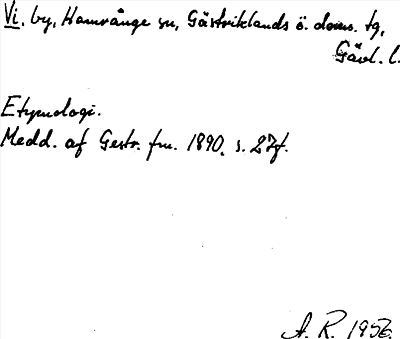 Vi, by, Hamrånge sn, Gästriklands ö. doms. tg,
Gävl. l.
Etymologi.
Medd. af Gestr. fm. 1890, s. 27f.
A. R. 1956.